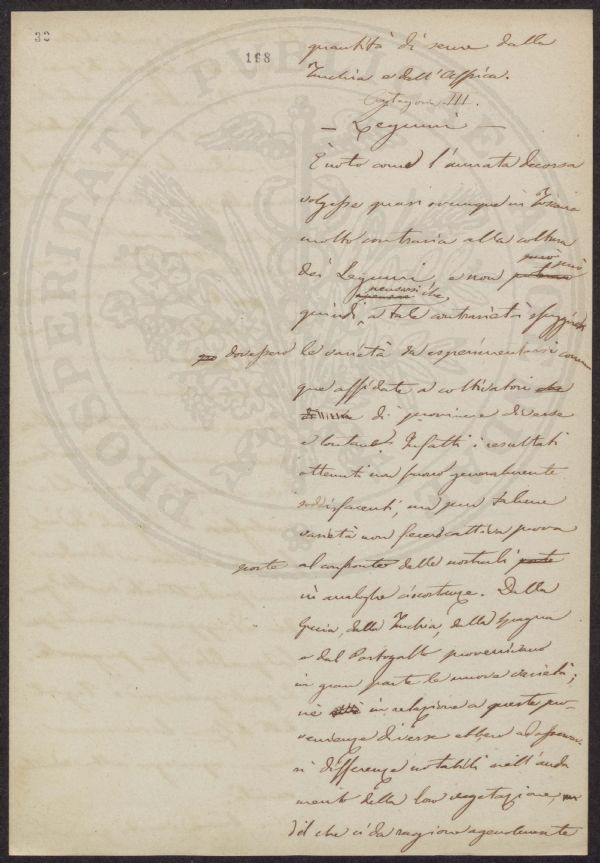 32
198
quantità di seme dalla
Turchia e dall'Affrica.
Categoria III.
— Legumi —
È noto come l'annata decorsa
volgesse quasi ovunque in Toscana
molto contraria alla coltura
dei Legumi, e non può però
pensarsi che,
quindi a tale contrarietà sfuggire
dovessero le varietà da esperimentarsi comun
que affidate a coltivatori che
di provincie diverse
e lontane. Infatti i resultati
ottenuti non furono generalmente
soddisfacenti, ma pur talune
varietà non fecero cattiva prova
poste al confronto delle nostrali poste
in analoghe circostanze. Dalla
Grecia, dalla Turchia, dalla Spagna
e dal Portogallo provenivano
in gran parte le nuove varietà;
nè in relazione a queste pro-
venienze diverse ebbero ad osservar
si differenze notabili nell'anda
mento della loro vegetazione,
il che ci dà ragione agevolmente
PROSPERITATI PUBLICAE